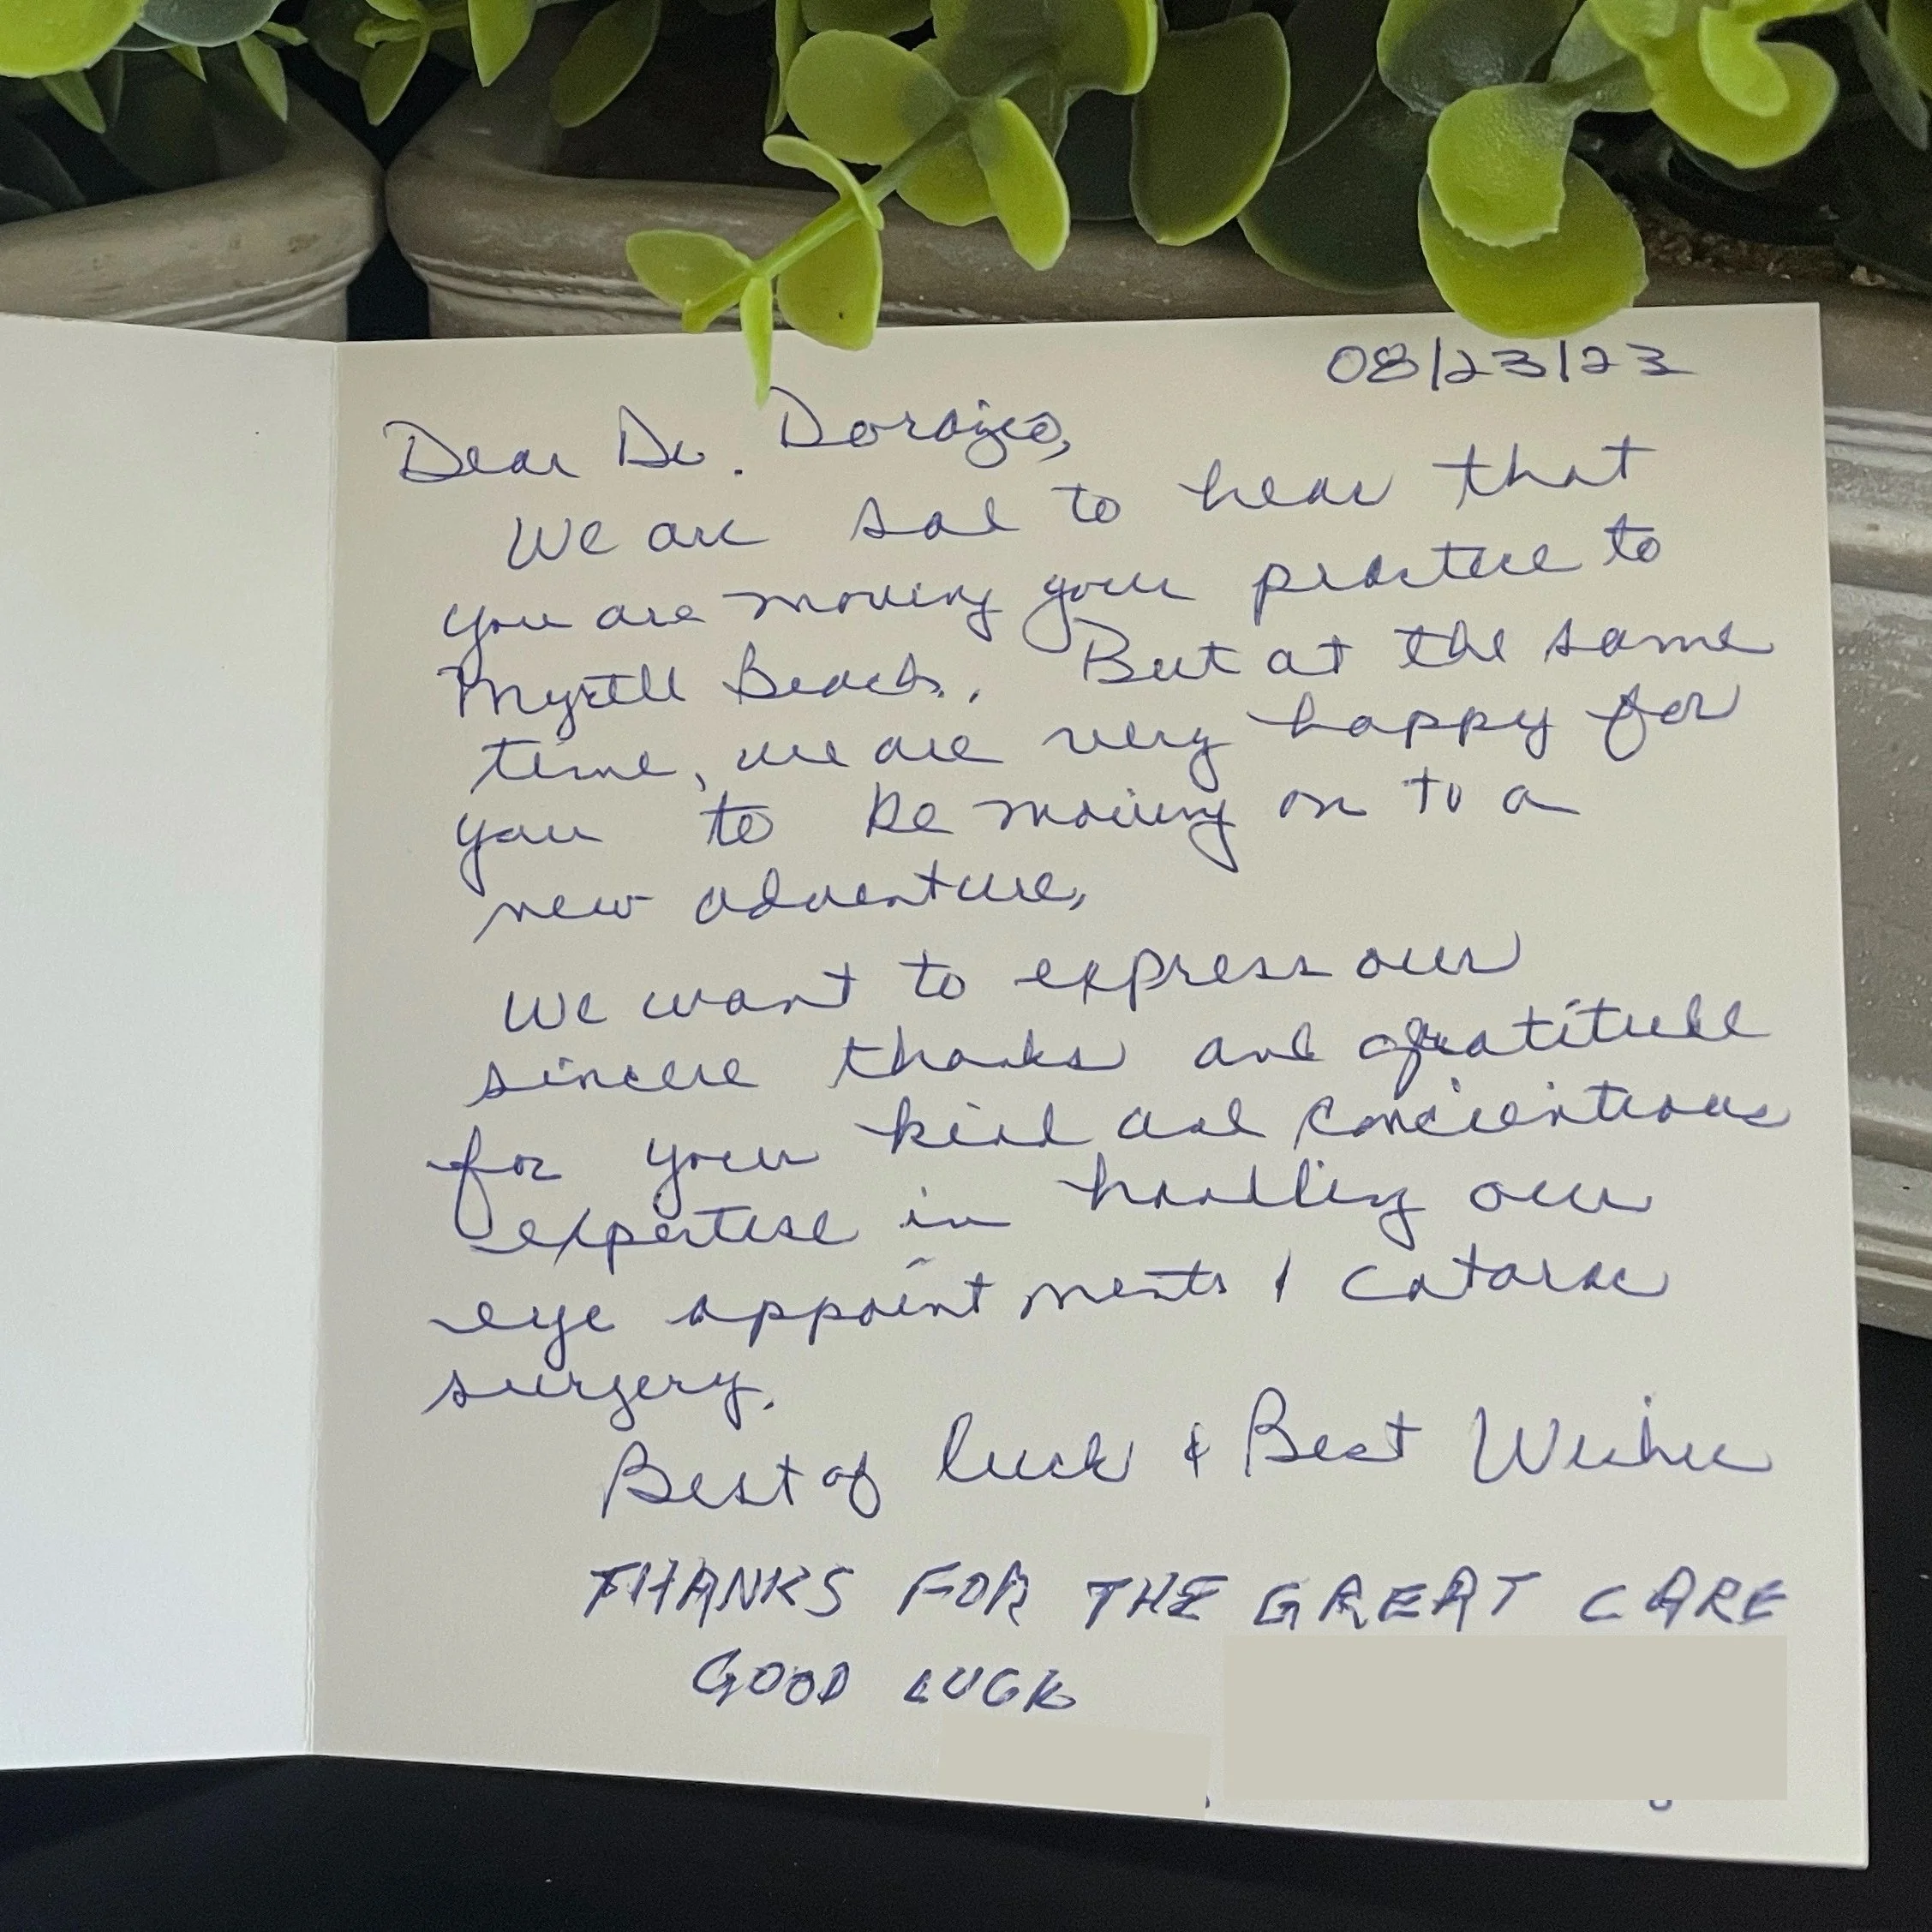 08/23/23
Dear Dr. Dorazio,
We are sad to hear that
you are moving your practice to
Myrtle Beach. But at the same
time, we are very happy for
you to be moving on to a
new adventure.
We want to express our
sincere thanks and gratitude
for your kind and concientious
expertise in handling our
eye appointments & catarac
surgery.
Best of luck & Best Wishes
THANKS FOR THE GREAT CARE
GOOD LUCK